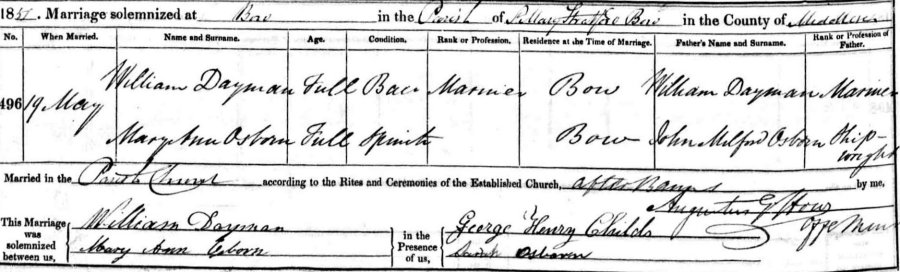 18 . Marriage solemnized at Bow in the Parish of Stratford Bow in the County of Middlesex
No. When Married. Name and Surname. Age. Condition. Rank or Profession. Residence at the Time of Marriage. Father's Name and Surname. Rank or Profession of Father.
496 19 May William Dayman Full Bacr Mariner Bow William Dayman Mariner
Mary Ann Osborn Full Spinster Bow John Milford Osborn Ship-
wright
Married in the Parish Church according to the Rites and Ceremonies of the Established Church, after Banns by me,
Augustus G How
This Marriage was solemnized between us, William Dayman in the Presence of us, George Henry Childs
Mary Ann Osborn Sarah Osborn